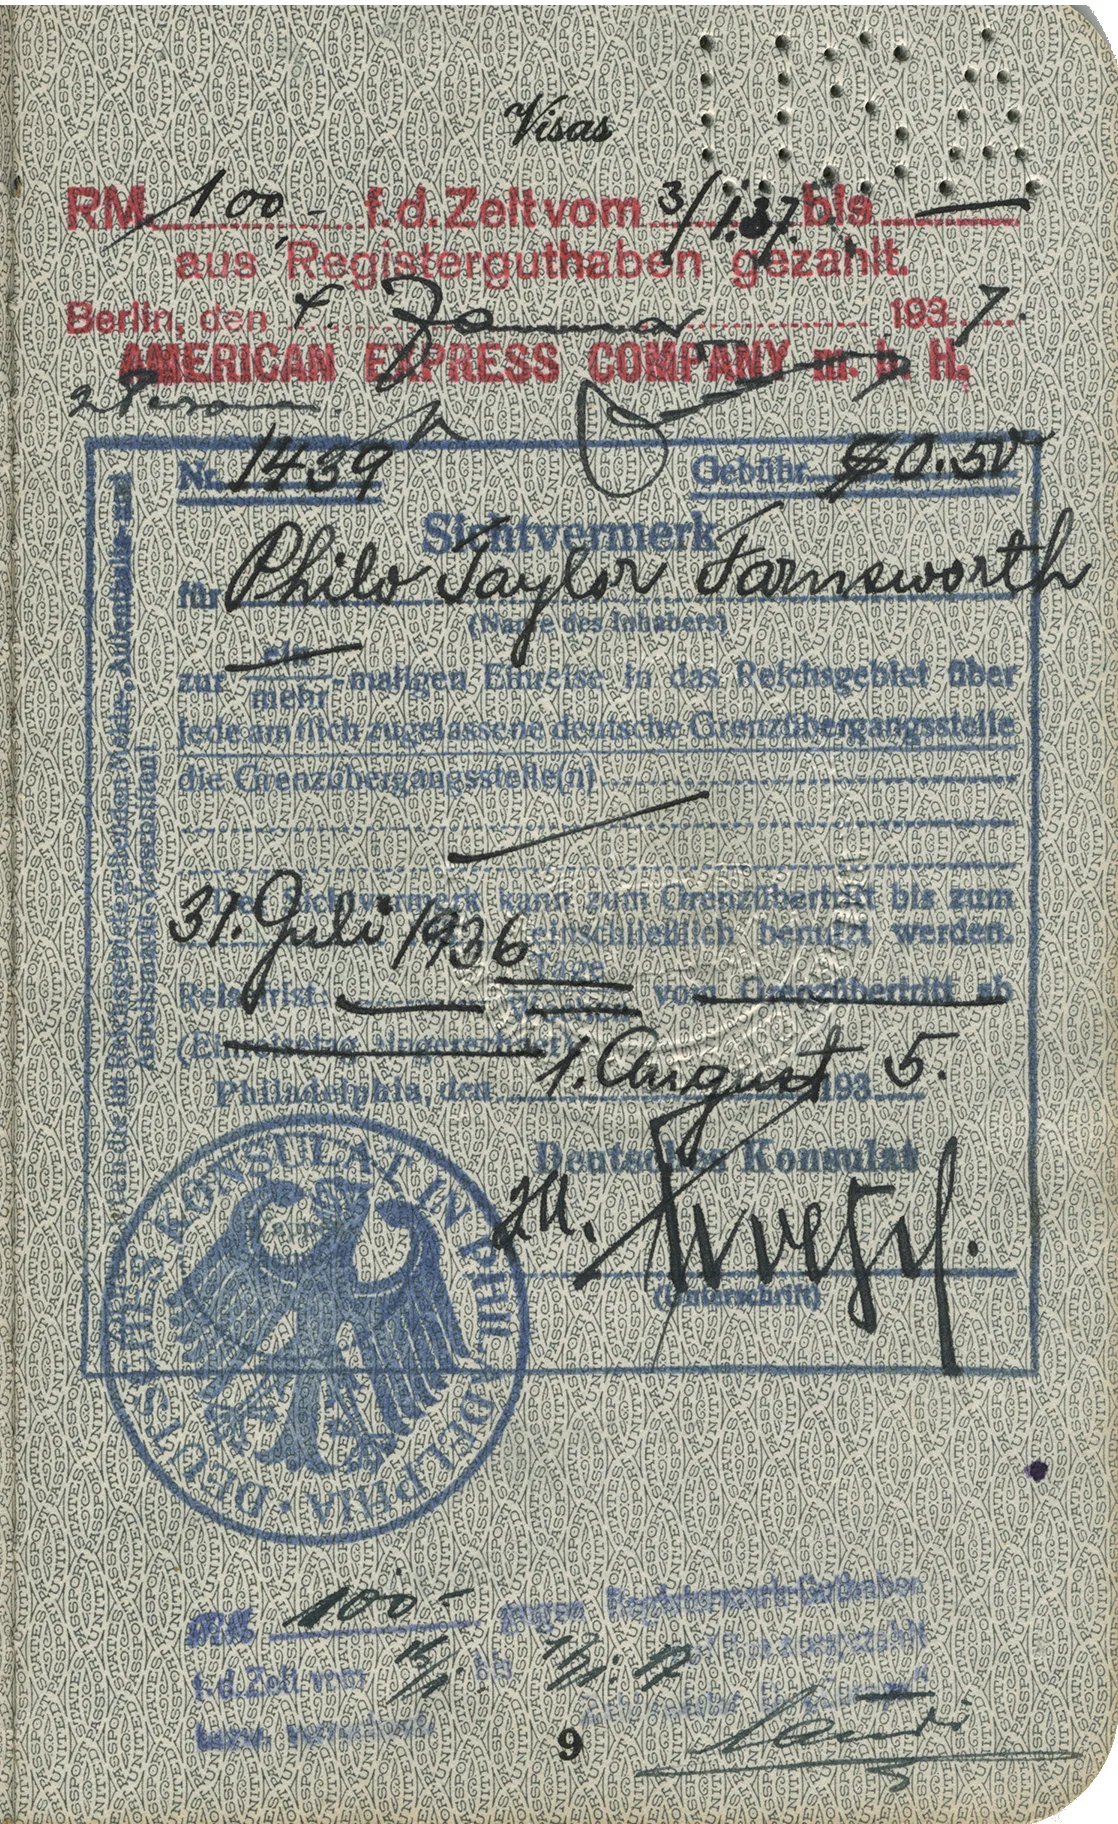 Visas
RM 100,- f.d. Zeit vom 3/1.37. bis —
aus Registerguthaben gezahlt.
Berlin, den 4. Januar 1937.
AMERICAN EXPRESS COMPANY m. b. H.
2 Person
Nr. 1439 Gebühr $0.50
Sichtvermerk
für Philo Taylor Farnsworth
(Name des Inhabers)
ein
zur mehr-maligen Einreise in das Reichsgebiet über
jede amtlich zugelassene deutsche Grenzübergangsstelle
die Grenzübergangsstelle(n)
Der Sichtvermerk kann zum Grenzübertritt bis zum
31. Juli 1936 einschließlich benutzt werden.
Tage
Reisefrist: Wochen vom Grenzübertritt ab
(Einreisetag eingerechnet)
Philadelphia, den 1. August 1935.
Deutsches Konsulat
(Unterschrift)
die im Reichsgebiet geltenden Melde-, Aufenthalts- und
Arbeitsmarkt-Vorschriften!
DEUTSCHES KONSULAT IN PHILADELPHIA
RM 100.- wegen Registermark-Guthaben
f.d. Zeit vom 15/1. bis 17
9